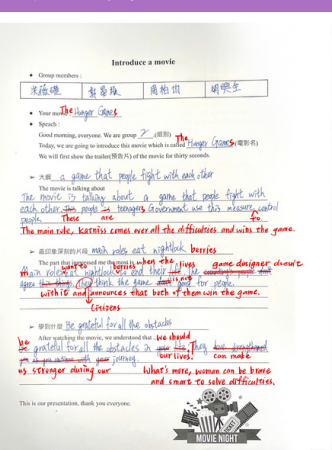 Introduce a movie
Group members :
Your movie The Hunger Games
Speach :
Good morning, everyone. We are group 2 .(組別)
Today, we are going to introduce this movie which is called The Hunger Games (電影名)
We will first show the trailer(預告片) of the movie for thirty seconds.
大綱 a game that people fight with each other
The movie is talking about
The movie is talking about a game that people fight with
each other. The people is teenagers. Government use this measure control
people. These are to
The main role, Katniss comes over all the difficulties and wins the game.
最印象深刻的片段 main roles eat nightlock berries
The part that impressed me the most is when the lives game designer doesn't
main role eat nightlock berries end their
They think the game is not good for people.
with it and announces that both of them win the game.
citizens
學到什麼 Be grateful for all the obstacles
After watching the movie, we understood that we should
be grateful for all the obstacles in They
journey. our lives. can make
us stronger during our What's more, woman can be brave
and smart to solve difficulties.
This is our presentation, thank you everyone.
MOVIE NIGHT